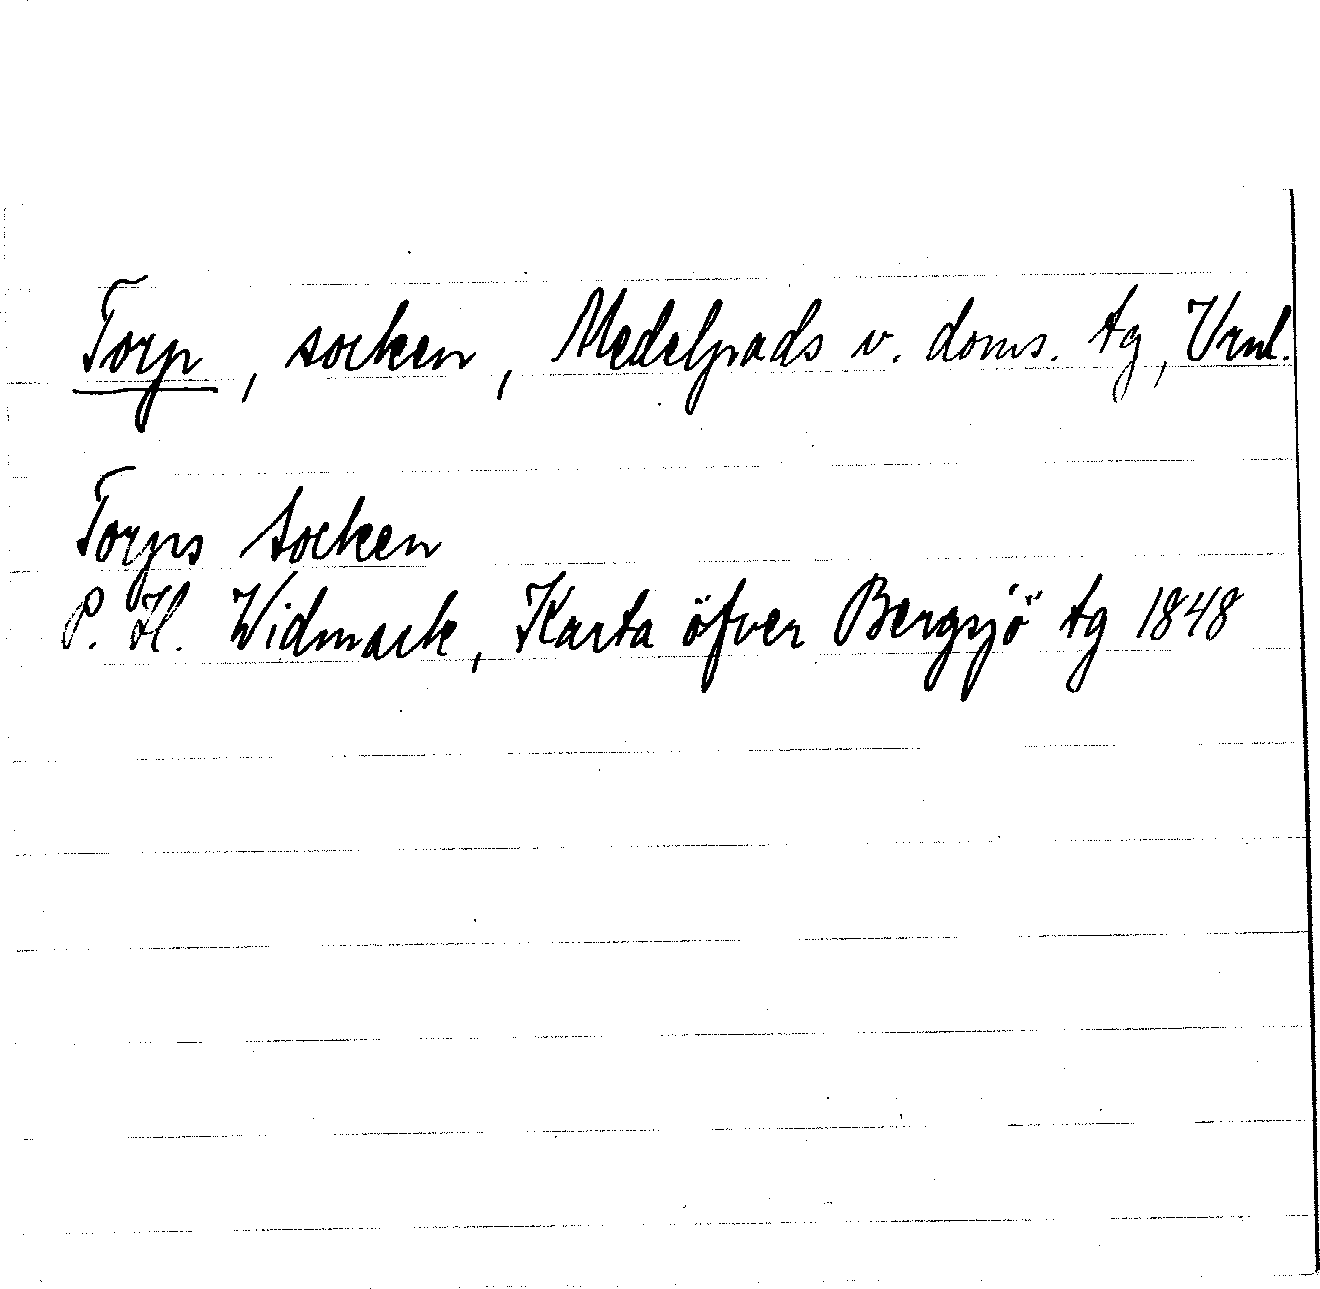 Torp, socken, Medelpads v. doms. tg, Vrnl.
Torps Socken
P. H. Widmark, Karta öfver Bergsjö tg 1848